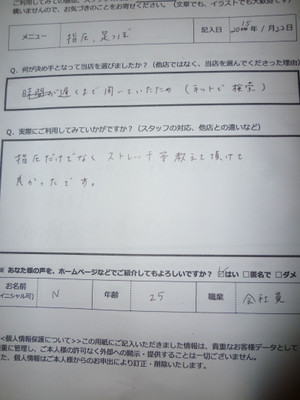 ご利用してみての感想、スタッフ
構いませんので、お気づきのことをお寄せください。(文章でも、イラストでも大歓迎です)
メニュー 指圧、足つぼ 記入日 2015年1月22日
Q. 何が決め手となって当店を選びましたか?(他店ではなく、当店を選んでくださった理由)
時間が遅くまで開いていたため(ネットで検索)
Q. 実際にご利用してみていかがですか?(スタッフの対応、他店との違いなど)
指圧だけでなく ストレッチ等教えて頂けて
良かったです。
※ あなた様の声を、ホームページなどでご紹介してもよろしいですか? ☑はい □匿名で □ダメ
お名前
(イニシャル可) N 年齢 25 職業 会社員
<個人情報保護について>>この用紙にご記入いただきました情報は、貴重なお客様データとして
重に管理し、ご本人様の許可なく外部への開示・提供することは一切ございません。
た、個人情報はご本人様からのお申出により訂正・削除いたします。